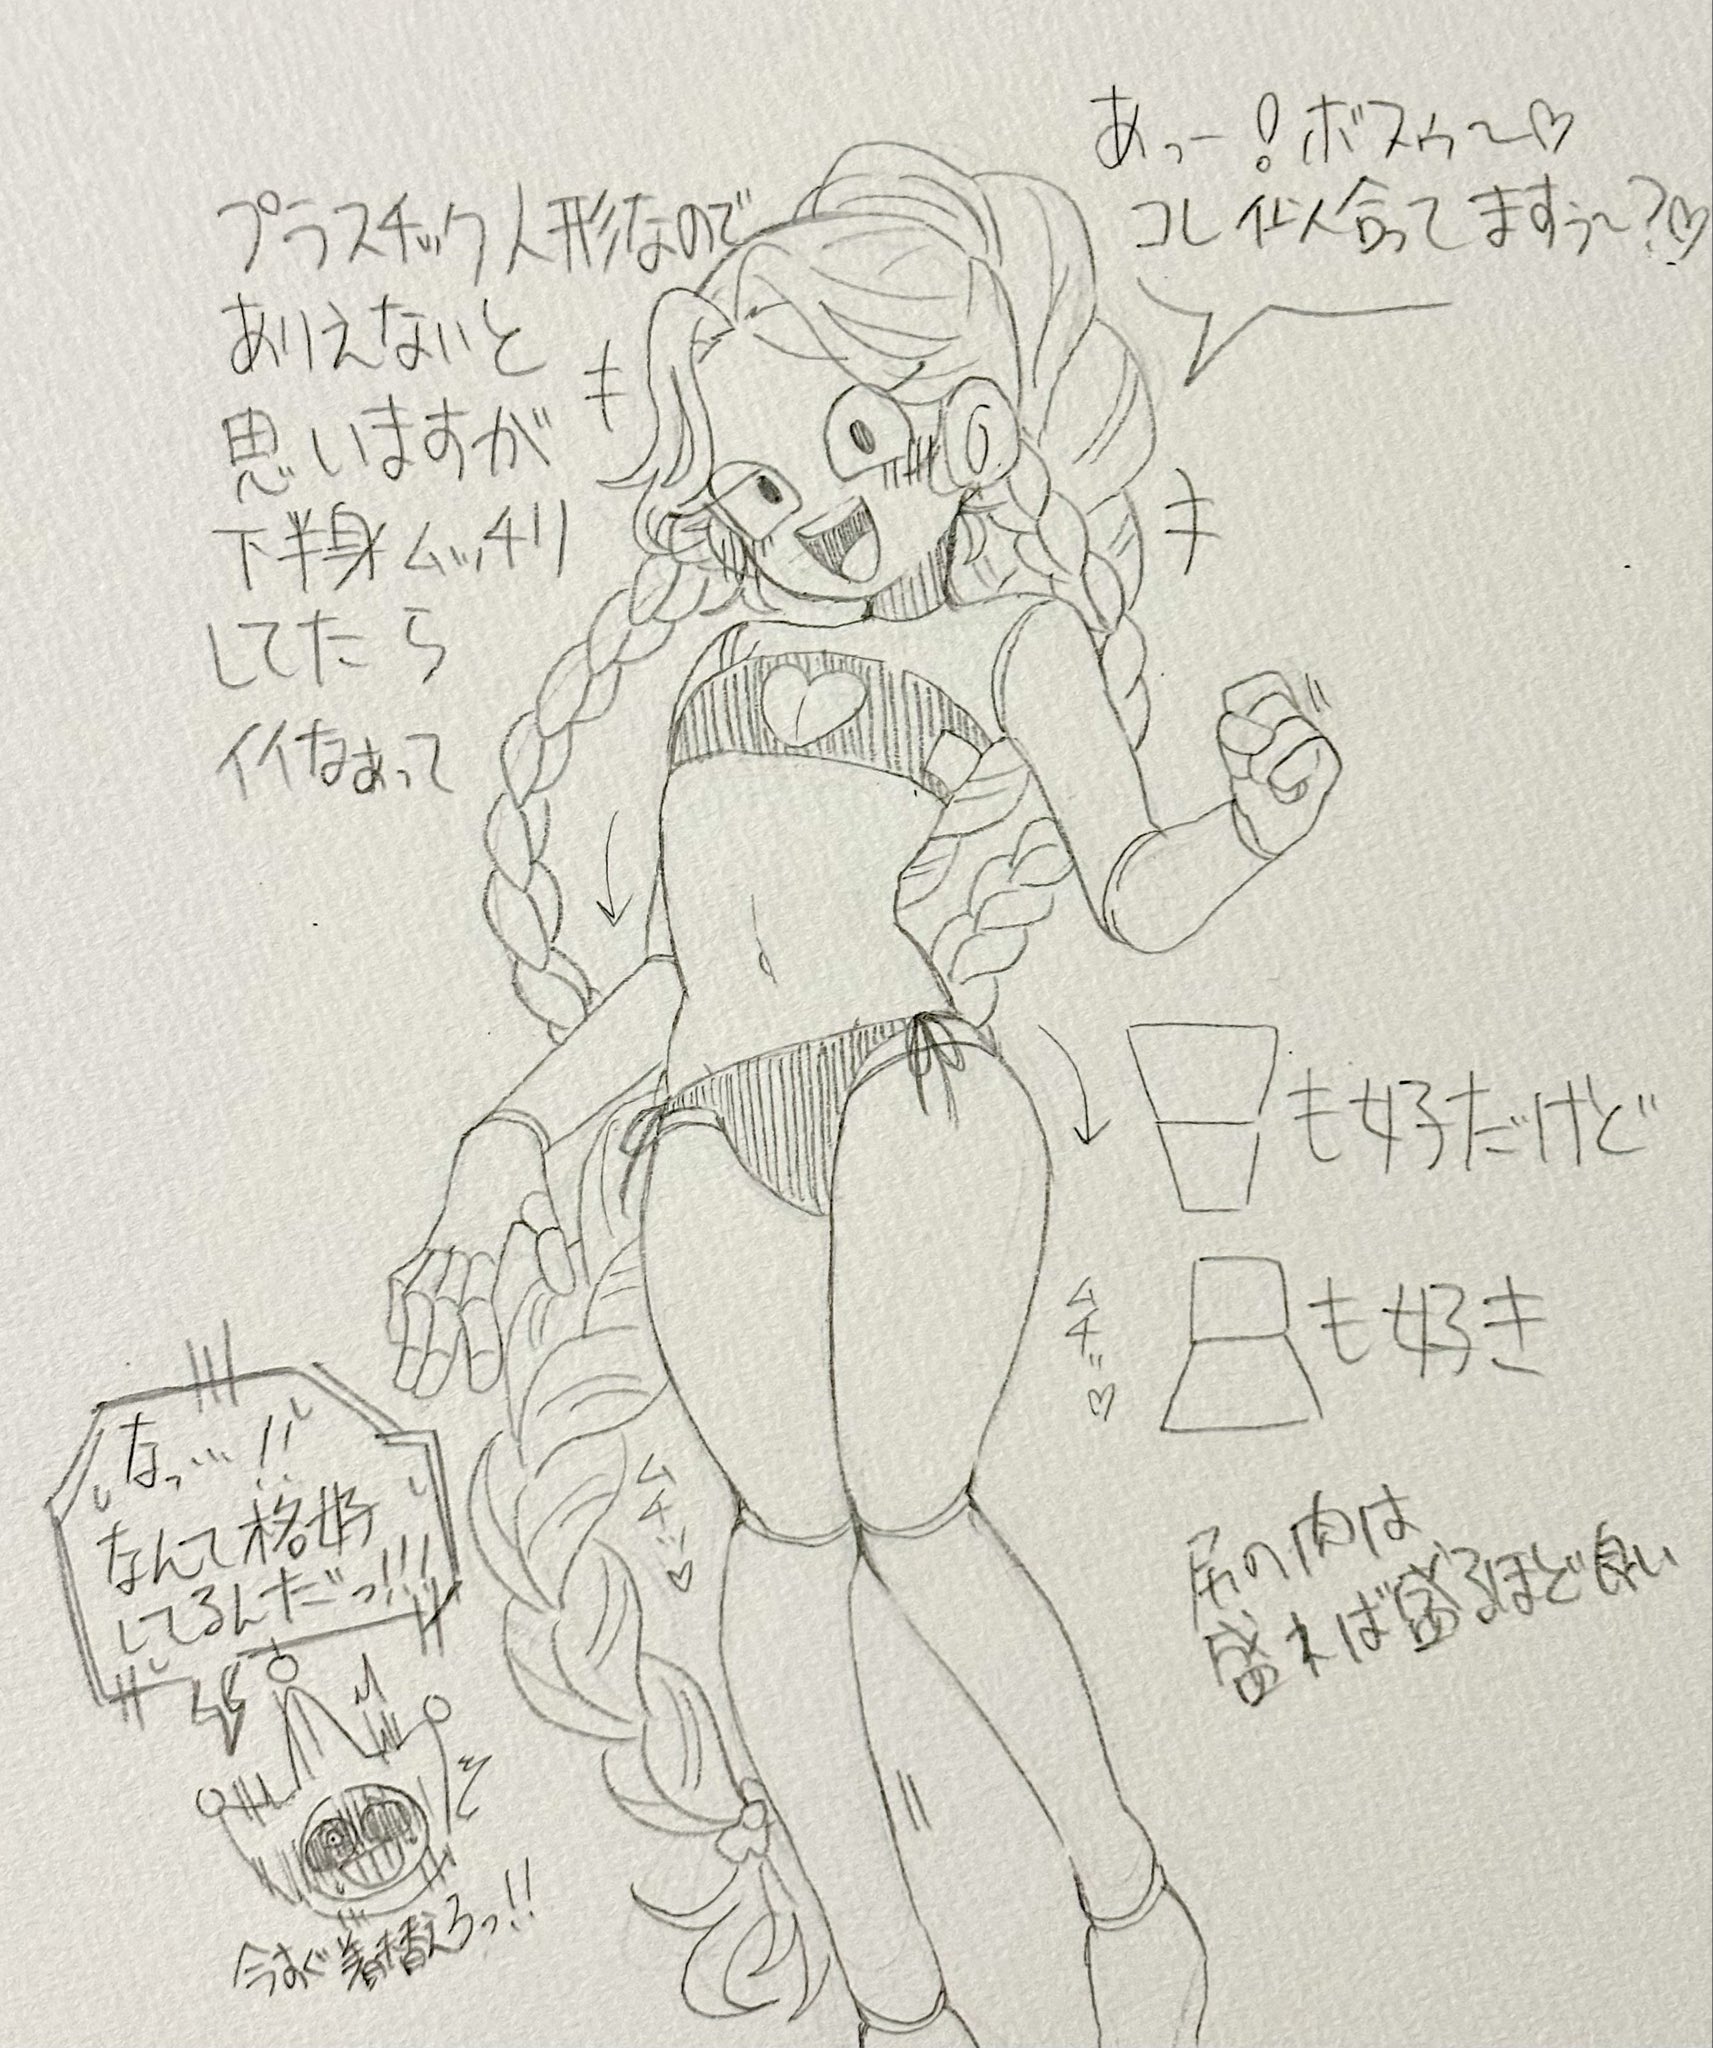 あっー!ボスゥ〜♡
コレ似合ってますぅ〜?♡
プラスチック人形なので
ありえないと
思いますが
下半身ムッチリ
してたら
イイなぁって
キ
キ
も好きだけど
も好き
ムチッ♡
ムチッ♡
尻の肉は
盛れば盛るほど良い
なっ…!!
なんて格好
してるんだっ!!!
今すぐ着替えろっ!!